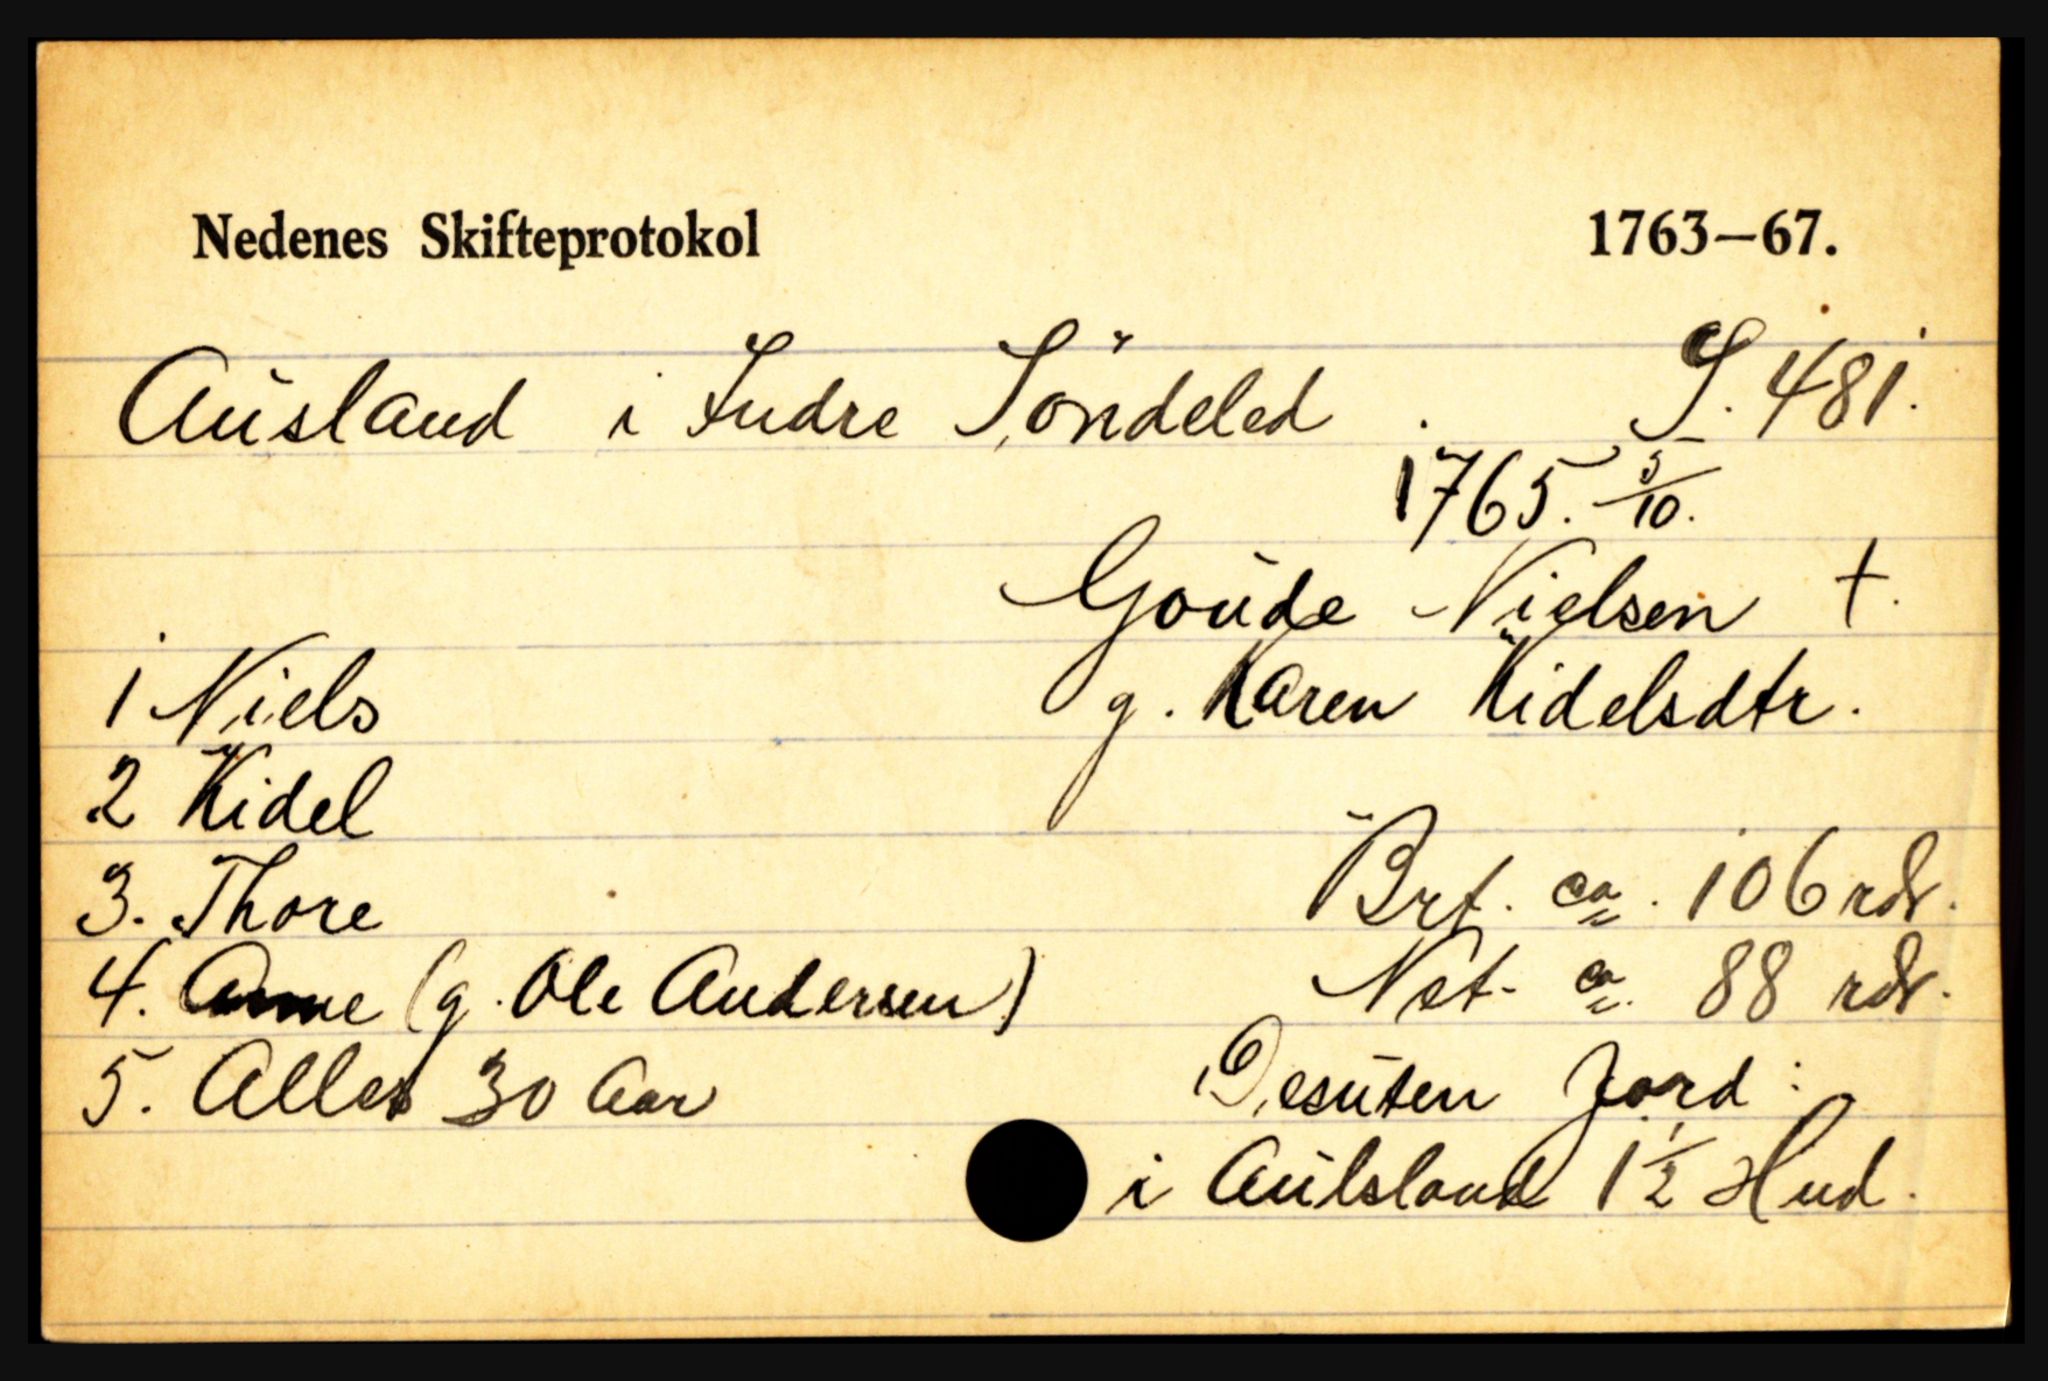 Nedenes Skifteprotokol 1763—67.
Ausland i Indre Söndeled . S. 481.
1765. 5/10.
Goude Nielsen †.
g. Karen Kidelsdtr.
1 Niels
2 Kidel
3. Thore
4. Anne (g. Ole Andersen)
5. Allet 30 Aar
Brt. ca. 106 rdr.
Net. ca. 88 rdr.
Desuten Jord:
i Aulsland 1 1/2 Hud.